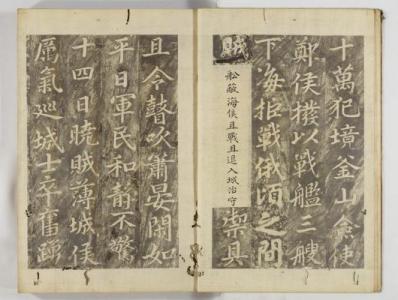 十萬犯境釜山僉使
鄭侯撥以戰艦三艘
下海拒戰俄頃之間
賊舩蔽海侯且戰且退入城治守禦具
且令瞽吹簫晏閑如
平日軍民和靜不驚
十四日曉賊薄城侯
厲氣巡城士卒奮踴